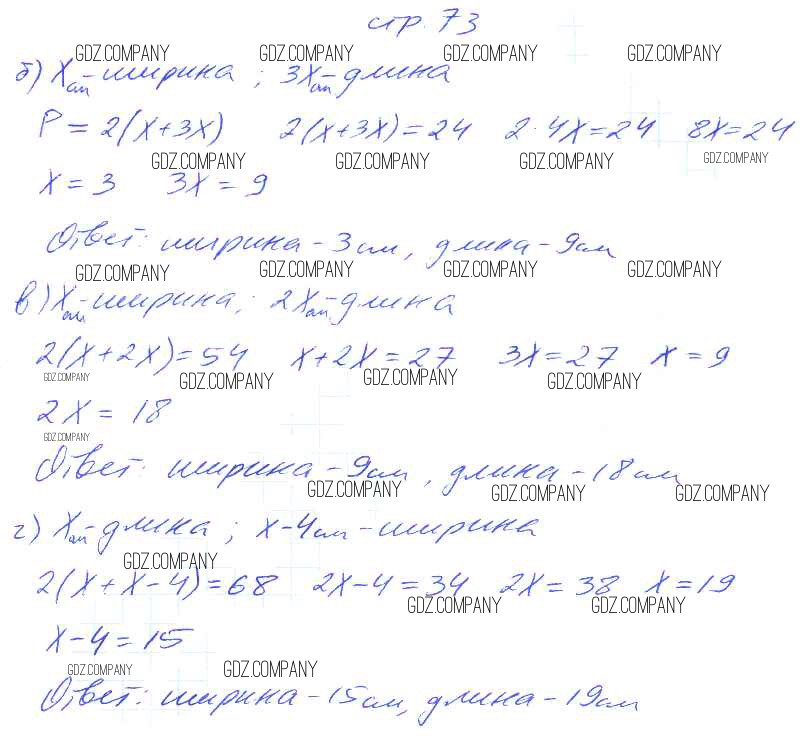 стр. 73
GDZ.COMPANY GDZ.COMPANY GDZ.COMPANY GDZ.COMPANY
б) X см - ширина ; 3X см - длина
P = 2(X+3X) 2(X+3X)=24 2·4X=24 8X=24
GDZ.COMPANY GDZ.COMPANY GDZ.COMPANY GDZ.COMPANY
X = 3 3X = 9
Ответ: ширина - 3 см, длина - 9 см
GDZ.COMPANY GDZ.COMPANY GDZ.COMPANY GDZ.COMPANY
в) X см - ширина; 2X см - длина
2(X+2X)=54 X+2X=27 3X=27 X=9
GDZ.COMPANY GDZ.COMPANY GDZ.COMPANY GDZ.COMPANY
2X = 18
GDZ.COMPANY
Ответ: ширина - 9 см, длина - 18 см
GDZ.COMPANY GDZ.COMPANY GDZ.COMPANY
г) X см - длина ; X-4 см - ширина
GDZ.COMPANY
2(X+X-4)=68 2X-4=34 2X=38 X=19
GDZ.COMPANY GDZ.COMPANY
X-4=15
GDZ.COMPANY GDZ.COMPANY
Ответ: ширина - 15 см, длина - 19 см